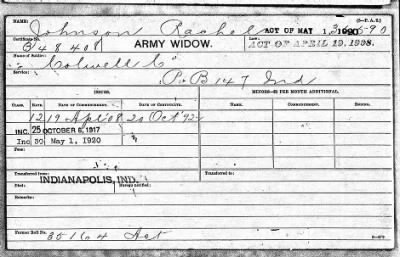 (3-P. A. G.)
NAME: Johnson Rachel ACT OF MAY 1, 1920
Certificate No. 348408 ARMY WIDOW. Law: ACT OF APRIL 19, 1908.
Name of Soldier: " Colwell C"
Service: P.B 147 Ind
ISSUES. MINORS—$2 PER MONTH ADDITIONAL.
CLASS. RATE. DATE OF COMMENCEMENT. DATE OF CERTIFICATE. NAME. COMMENCEMENT. ENDING.
12 19 Apl 08 20 Oct
INC. 25 OCTOBER 6, 1917
Inc 30 May 1, 1920
Transferred from INDIANAPOLIS, IND. Transferred to
Died: Bureau notified:
Remarks:
Former Roll No. 351604 Act